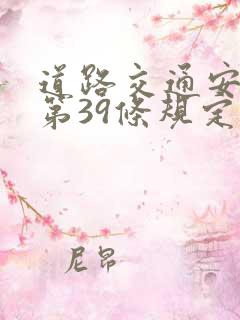 道路交通安
第39條規定
尼昂